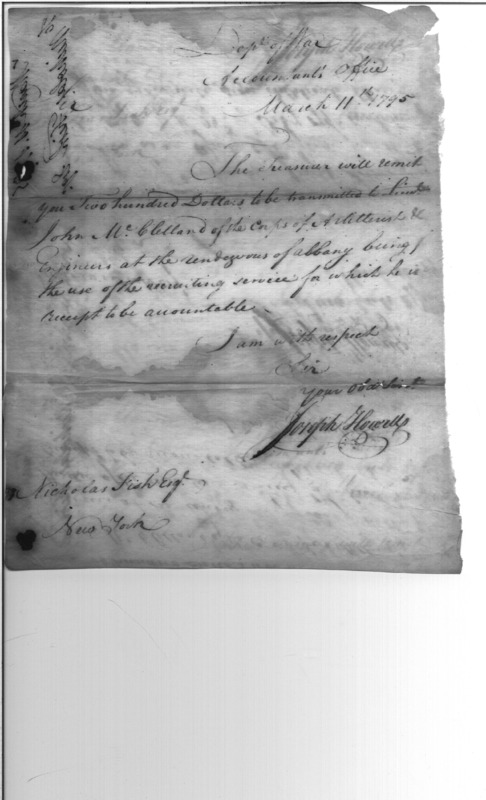 Dept of War
Accountants Office
March 11th 1795
The Treasurer will remit
you Two hundred Dollars to be transmitted to Lieut
John Mc Clelland of the Corps of Artillerist &
Engineers at the rendezvous of albany being f
the use of the recruiting service for which he is
receipt to be accountable
I am with respect
Sir
Your Obdt Servt
Joseph Howell
Nicholas Fish Esqr
New York